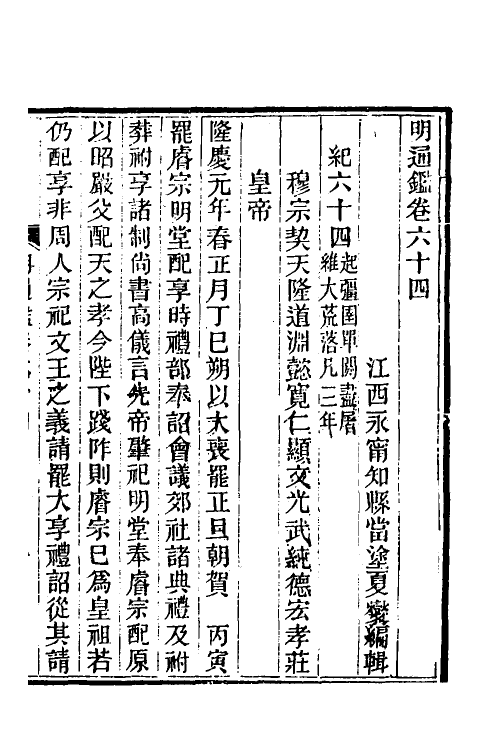 明通鑑卷六十四
江西永甯知縣當塗夏燮編輯
紀六十四起彊圉單閼盡屠
維大荒落凡三年
穆宗契天隆道淵懿寬仁顯文光武純德宏孝莊
皇帝
隆慶元年春正月丁巳朔以大喪罷正旦朝賀 丙寅
罷睿宗明堂配享時禮部奉詔會議郊社諸典禮及祔
葬祔享諸制尚書高儀言先帝肇祀明堂奉睿宗配原
以昭嚴父配天之孝今陛下踐阼則睿宗巳爲皇祖若
仍配享非周人宗祀文王之義請罷大享禮詔從其請